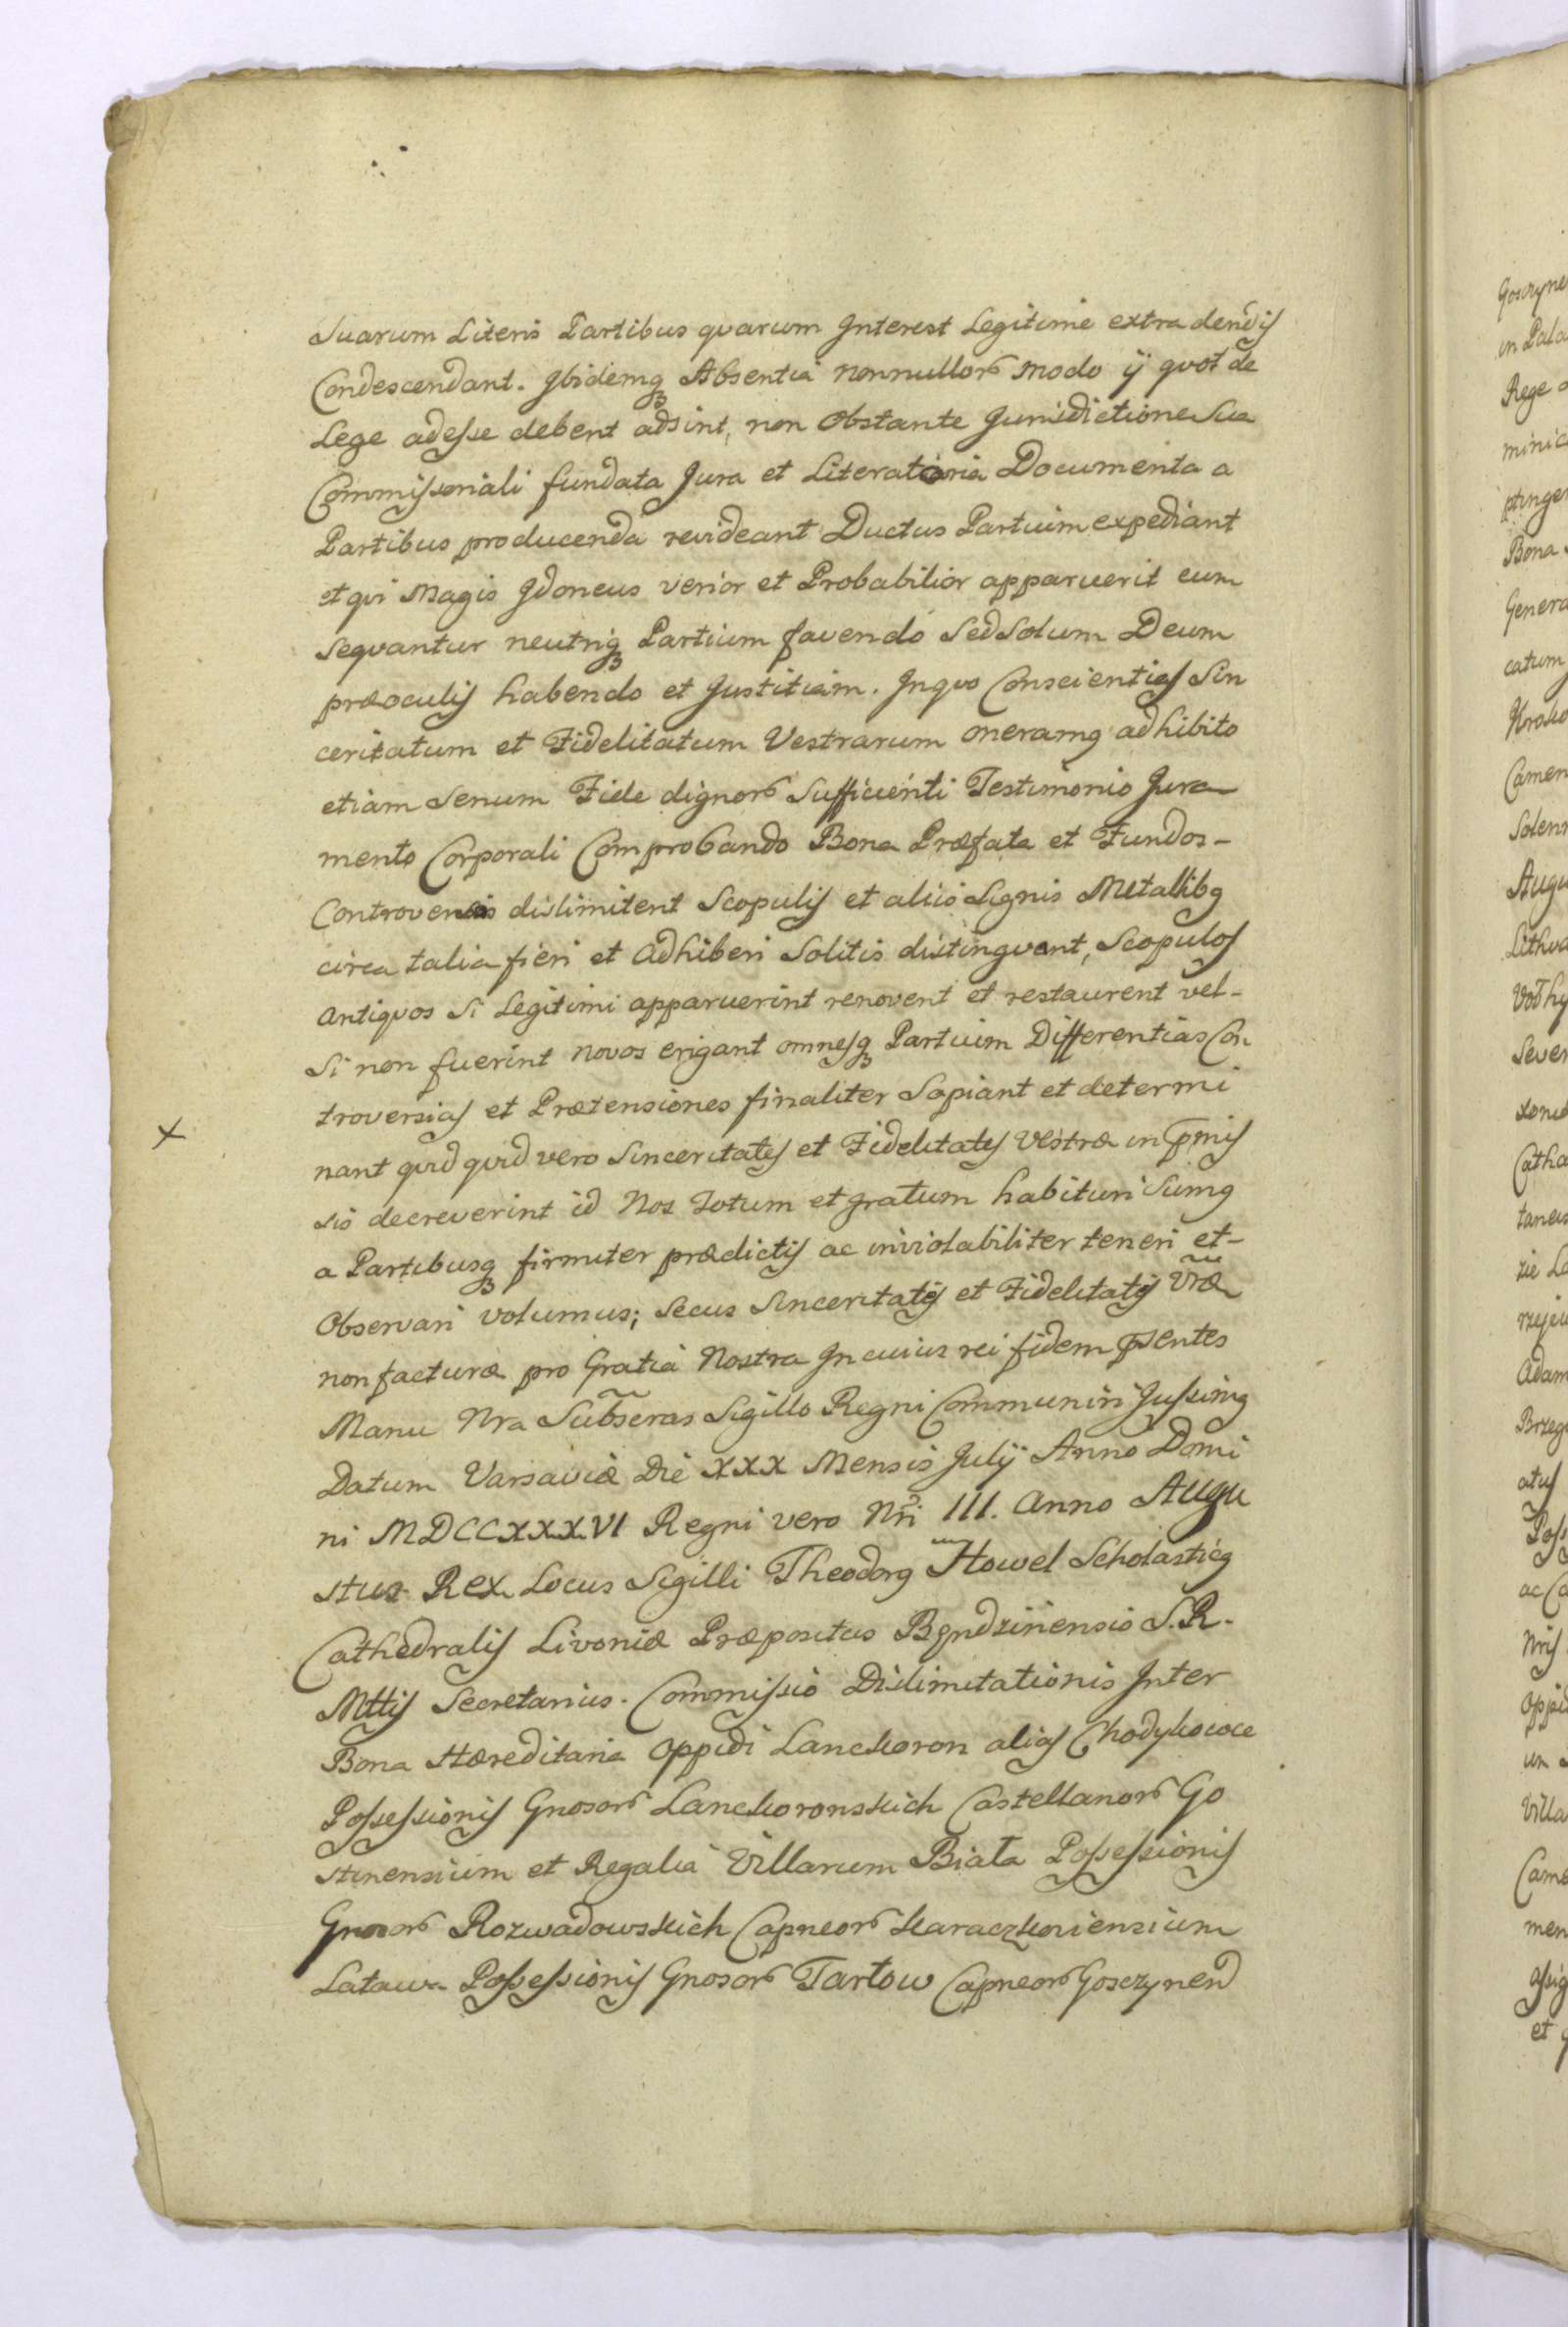 Suarum Literis Partibus quarum Interest Legitime extra dendis
Condescendant. Ibidemq₃ Absentia nonnullorꝭ modo ij quot de
Lege adesse debent adsint, non Obstante Jurisdictione Sua
Commissoriali fundata Jura et Literatoria Documenta a
Partibus producenda revideant Ductus Partium expediant
et qvi Magis Idoneus verior et Probabilior apparuerit eum
Seqvantur neutriq₃ Partium favendo Sed Solum Deum
præoculis habendo et Justitiam. Inqvo Conscientias Sin
ceritatum et Fidelitatum Vestrarum oneramq adhibito
etiam Senum Fide dignorꝭ Sufficienti Testimonio Jura
mento Corporali Comprobando Bona Præfata et Fundos-
Controversos dislimitent Scopulis et aliis Signis Metallibq
circa talia fieri et adhiberi Solitis distingvant, Scopulos
antiqvos Si Legitimi apparuerint renovent et restaurent vel-
Si non fuerint novos erigant omnesq₃ Partium Differentias Con
troversias et Prætensiones finaliter Sopiant et determi
nant qvid qvid vero Sinceritates et Fidelitates Vestræ in pmis
sis decreverint id Nos Totum et gratum habituri Sumq
a Partibusq₃ firmiter prædictis ac inviolabiliter teneri et-
Observari volumus; Secus Sinceritates et Fidelitates Vræ
non facturæ pro Gratia Nostra In cuius rei fidem psentes
Manu Nra Subscras Sigillo Regni Communiri Jussimq
Datum Varsaviæ Die XXX Mensis Julij Anno Domi
ni MDCCXXXVI Regni vero Nri III. Anno Augu
stus Rex Locus Sigilli Theodorq Howel Scholasticq
Cathedralis Livoniæ Præpositus Bęndzinensis S. R.
Mttis Secretarius. Commissio Dislimitationis Inter
Bona Hæreditaria Oppidi Lanckoron alias Chodykowce
Possessionis Gnosorꝭ Lanckoronskich Castellanorꝭ Go
stinensium et Regalia Villarum Biała Possessionis
Gnosorꝭ Rozwadowskich Capneorꝭ Karaczkoviensium
Latawa Possessionis Gnosorꝭ Tarłow Capneorꝭ Gosczynen
x
in Pala
Rege
Bona
Genera
catum
Camen
Solen
Augu
Lithua
Sever
Catha
Adam
atus
ac Ca
Nris
Villa
Came
men
assig
et